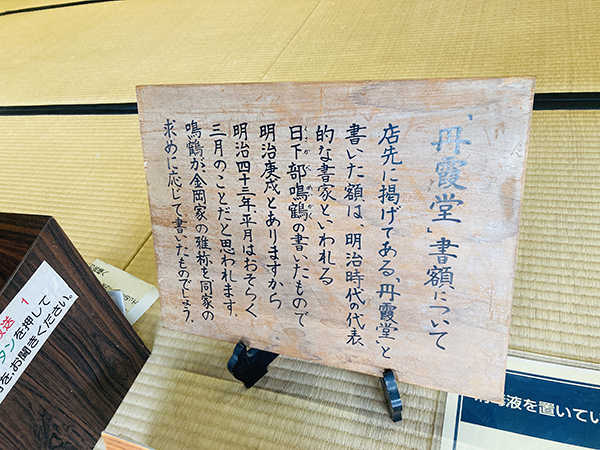 「丹霞堂」書額について
店先に掲げてある「丹霞堂」と
書いた額は、明治時代の代表
的な書家といわれる
日下部鳴鶴の書いたもので
くさかべめいかく
明治庚戌とありますから
明治四十三年、平月はおそらく
三月のことだと思われます。
鳴鶴が金岡家の雅称を同家の
求めに応じて書いたものでしょう。
放送 1
タンを押して
を、お聞きください。
液を置いてい